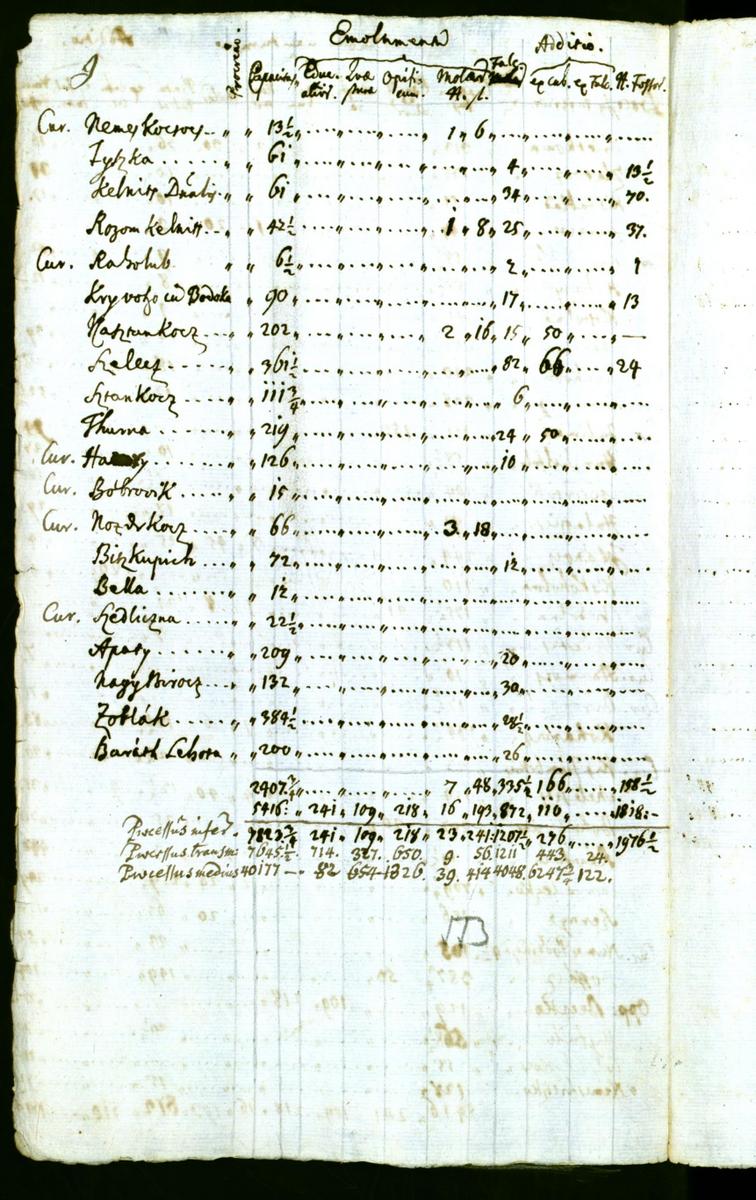 Emolumenta Additio.
Capacitas Educ. Opifi- Molar. Falc. ex cub. ex Falc. ft. Fossor.
cum. ft. f.
Cur. Nemes Kocsocz 13½ 1 6
Zyszka 61 4 13½
Kelnitz Dnalis 61 34 70.
Rozom Kelnitz 42½ 1 8 25 37.
Cur. Rakolub 6½ 2 1
Kryvoho cu Bodoka 90 17 13
Nasztankocz 202 2 16 15 50 —
Szelecz 361½ 82 66 24
Sztankocz 111¾ 6
Thurna 219 24 50
Cur. 126 10
Cur. Bobrovik 15
Cur. Nozdrkocz 66 3 18
Biszkupich 72 12
Bella 12
Cur. Szedliczna 22½
Apaty 209 20
Nagy Birocz 132 30
Zoblák 384½ 28½
Baráth Lehota 200 26
2407¾ 7 48 335½ 166 158½
5416 241 109 218 16 193 872 110 1818
Processus infer. 7823¾ 241 109 218 23 241 1207½ 276 1976½
Processus transm. 7645½ 714. 327. 650. 9. 56. 1211 443. 24.
Processus medius 40177 — 82 654 1326. 39. 414 4048. 6247½ 122.